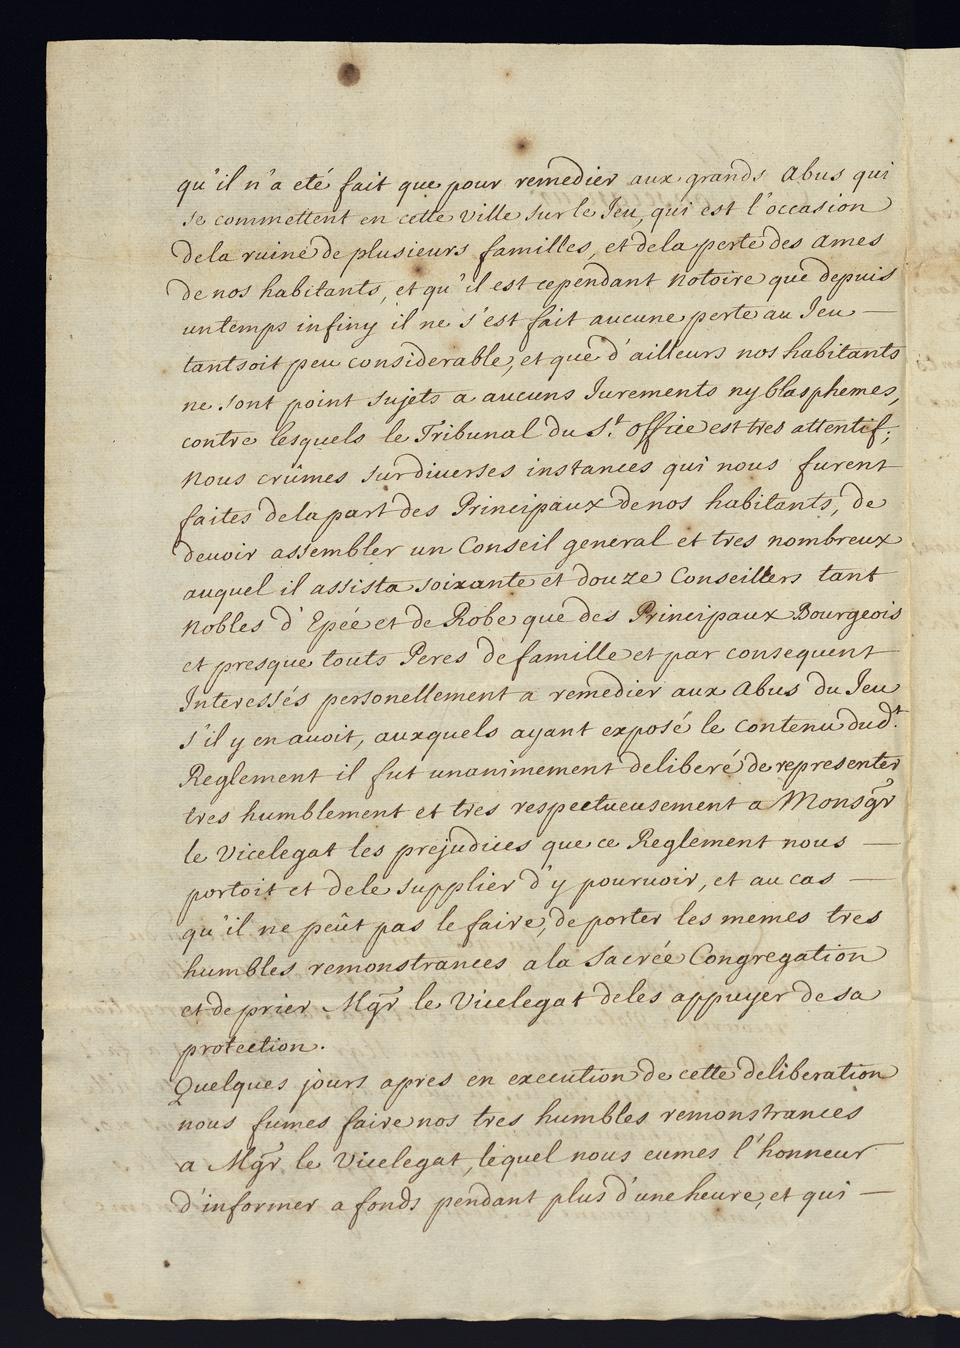 qu'il n'a eté fait que pour remedier aux grands Abus qui
se commettent en cette Ville sur le Jeu, qui est l'occasion
de la ruine de plusieurs familles, et de la perte des Ames
de nos habitants, et qu'il est cependant Notoire que depuis
un temps infiny il ne s'est fait aucune perte au Jeu —
tant soit peu considerable, et que d'ailleurs nos habitants
ne sont point sujets a aucuns Jurements ny blasphemes,
contre lesquels le Tribunal du S.t Office est tres attentif;
Nous crûmes sur diverses instances qui nous furent
faites de la part des Principaux de nos habitants, de
devoir assembler un Conseil general et tres nombreux
auquel il assista soixante et douze Conseillers tant
Nobles d'Epée et de Robe que des Principaux Bourgeois
et presque touts Peres de famille et par consequent
Interessés personellement a remedier aux Abus du Jeu
s'il y en avoit, auxquels ayant exposé le contenu dud.t
Reglement il fut unanimement deliberé de representer
tres humblement et tres respectueusement a Monsgr
le Vicelegat les prejudices que ce Reglement nous —
portoit et de le supplier d'y pourvoir, et au cas —
qu'il ne peût pas le faire, de porter les memes tres
humbles remonstrances a la Sacrée Congregation
et de prier Mgr le Vicelegat de les appuyer de sa
protection.
Quelques jours apres en execution de cette deliberation
nous fumes faire nos tres humbles remonstrances
a Mgr le Vicelegat, lequel nous eumes l'honneur
d'informer a fonds pendant plus d'une heure, et qui —